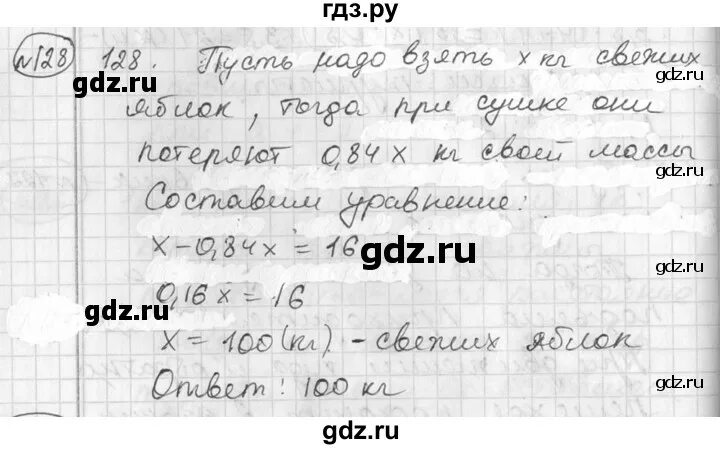 гдз.ру
№128 128. Пусть надо взять x кг свежих
gdz.ru
яблок, тогда при сушке они
gdz.ru gdz.ru
потеряют 0,84x кг своей массы
gdz.ru
Составим уравнение:
gdz.ru
x-0,84x = 16
gdz.ru
gdz.ru
0,16x = 16
gdz.ru
x = 100(кг) - свежих яблок
gdz.ru
Ответ: 100 кг
gdz.ru
gdz.ru